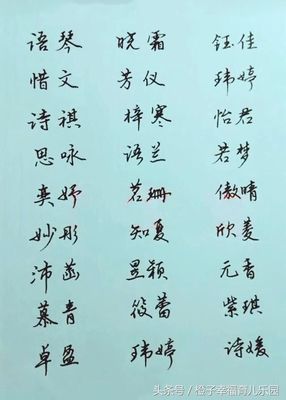 语琴 晓霜 钰佳
惜文 芳仪 玮婷
诗祺 梓寒 怡君
思咏 语兰 若梦
奕妤 茗珊 傲晴
妙彤 知夏 欣菱
沛菡 昱颖 元香
慕青 筱蕾 紫琪
卓盈 玮婷 诗媛
头条号 / 橙子幸福育儿乐园